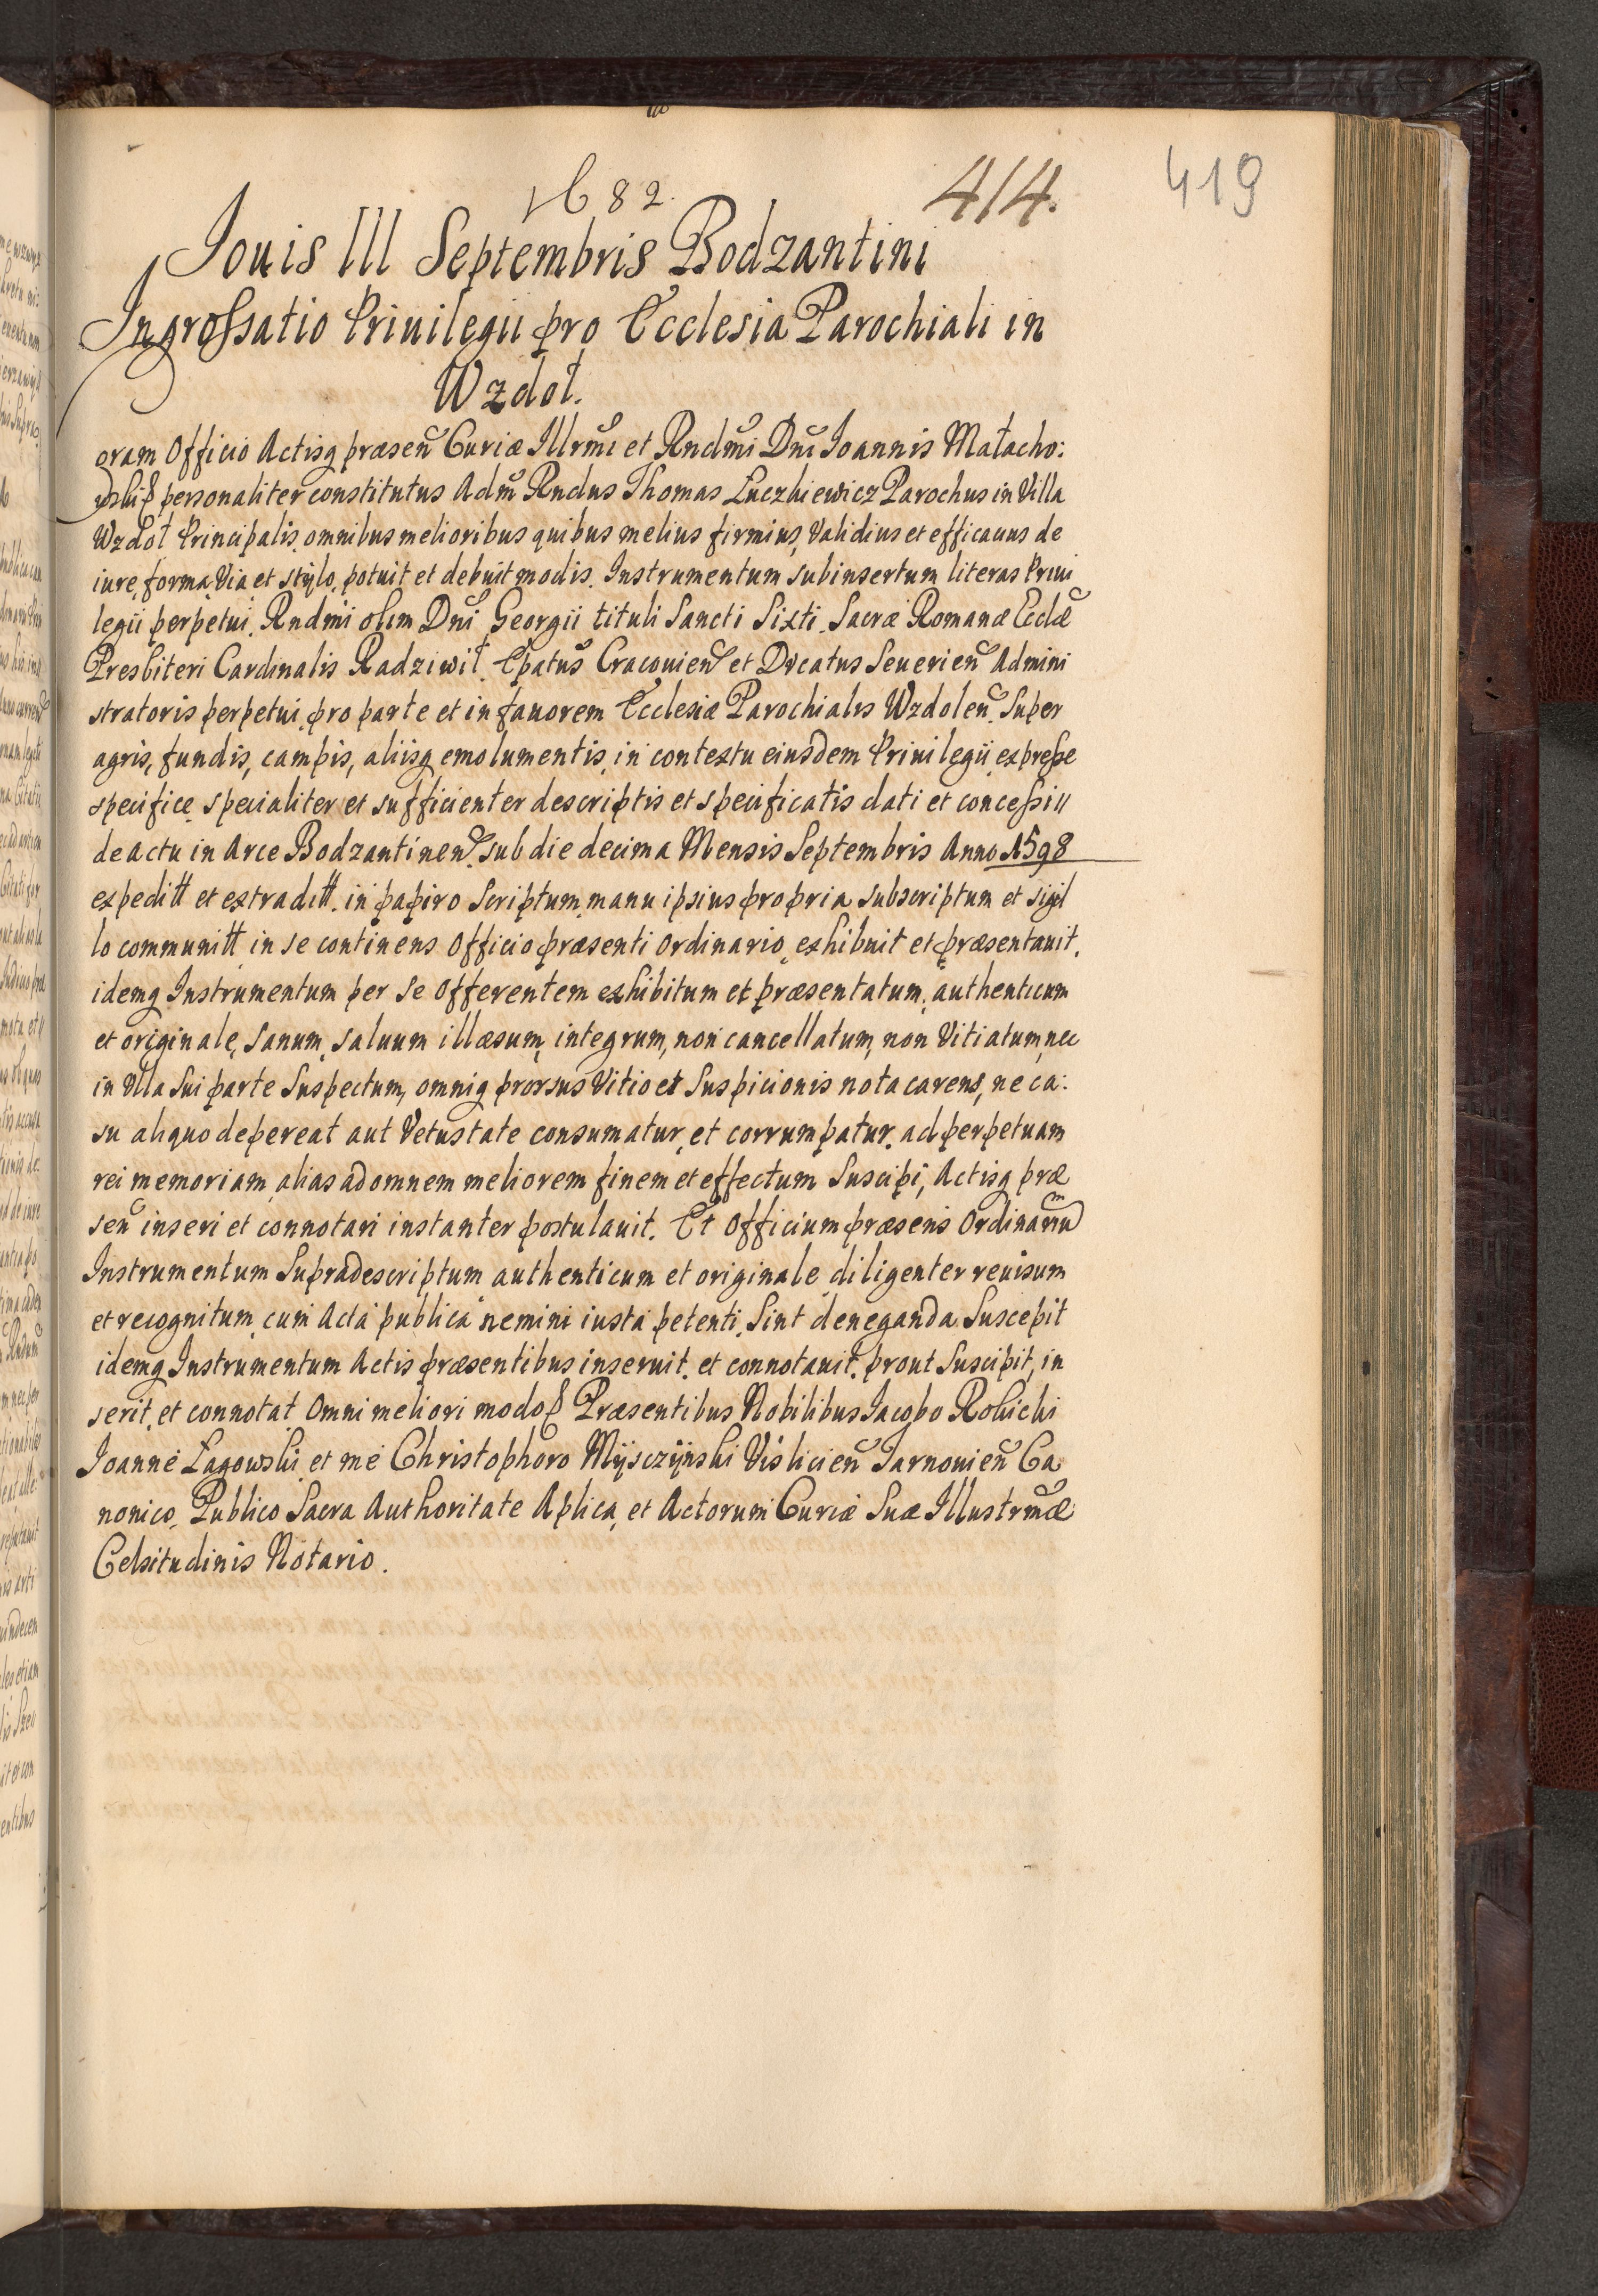 1682.
414.
419
Iouis III Septembris Bodzantini
Ingrossatio Priuilegii pro Ecclesia Parochiali in
Wzdoł.
Coram Officio Actisq præsen̄ Curiæ Illrm̄i et Rndm̄i Dn̄i Ioannis Małacho:
wski personaliter constitutus Adm̄ Rndus Thomas Łuczkiewicz Parochus in Villa
Wzdoł Principalis omnibus melioribus quibus melius firmius, Validius et efficacius de
iure, forma, Via et stÿlo, potuit et debuit modis. Instrumentum subinsertum literas Priui
legii perpetui. Rndm̄i olim Dn̄i Georgii tituli Sancti Sixti. Sacræ Romanæ Eccl̄æ
Presbiteri Cardinalis Radziwił. Ep̄atus Cracouien̄ et Ducatus Seuerien̄ Admini
stratoris perpetui, pro parte et in fauorem Ecclesiæ Parochialis Wzdolen̄. Super
agris, fundis, campis, aliisq emolumentis, in contextu eiusdem Priuilegii expresse
specifice, specialiter et sufficienter descriptis et specificatis dati et concessi //
de actu in Arce Bodzantinen̄. sub die decima Mensis Septembris Anno 1598
expeditt et extraditt. in papiro Scriptum, manu ipsius propria subscriptum et sigil
lo communitt in se continens Officio præsenti Ordinario, exhibuit et præsentauit.
idemq Instrumentum per se Offerentem exhibitum et præsentatum, authenticum
et originale, sanum, saluum illæsum, integrum, non cancellatum, non Vitiatum, nec
in Vlla Sui parte Suspectum, omniq prorsus Vitio et Suspicionis nota carens, ne ca:
su aliquo depereat aut Vetustate consumatur, et corrumpatur. ad perpetuam
rei memoriam, alias ad omnem meliorem finem et effectum Suscipi, Actisq præ
sen̄ inseri et connotari instanter postulauit. Et Officium præsens Ordinariū
Instrumentum Supradescriptum authenticum et originale, diligenter reuisum
et recognitum, cum Acta publica nemini iusta petenti, Sint deneganda, Suscepit
idemq Instrumentum Actis præsentibus inseruit. et connotauit. prout Suscipit, in
serit, et connotat Omni meliori modo. Præsentibus Nobilibus Iacobo Rokicki
Ioanne Łagowski, et me Christophoro Mÿsczÿnski Vislicien̄ Tarnouien̄ Ca
nonico, Publico Sacra Authoritate Aplica, et Actorum Curiæ Suæ Illustrm̄æ
Celsitudinis Notario.